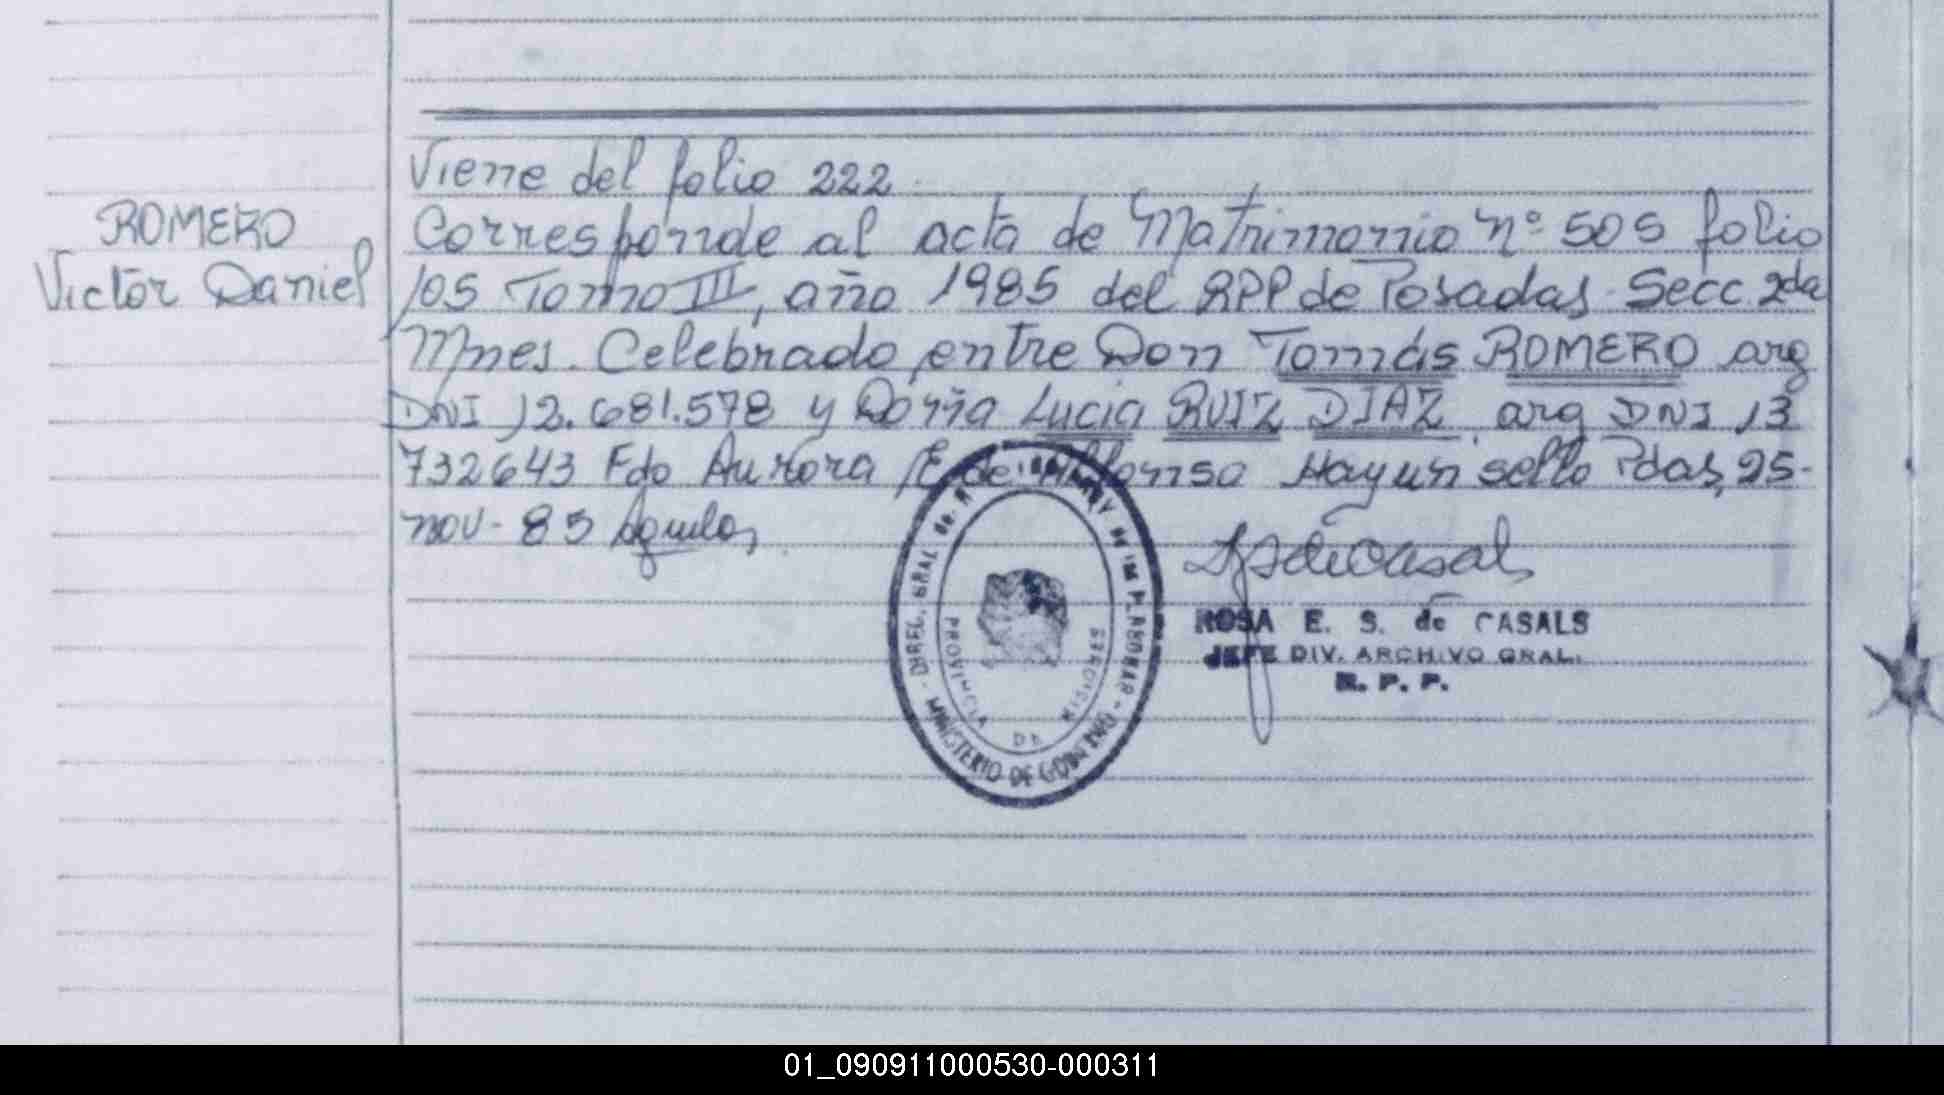 Viene del folio 222
ROMERO
Victor Daniel
Corresponde al acta de Matrimonio nº 505 folio
105 Tomo III, año 1985 del RPP de Posadas. Secc. 2da
Mnes. Celebrado entre Don Tomás ROMERO arg
DNI 12.681.578 y Doña Lucia RUIZ DIAZ arg DNI 13
732643 Fdo Aurora E de Alfonso Hayun sello Pdas, 25-
nov- 85
ROSA E. S. de CASALS
JEFE DIV. ARCHIVO GRAL.
R. P. P.
DIREC. GRAL de
MINISTERIO DE GOBIERNO
PROVINCIA DE MISIONES
01_090911000530-000311